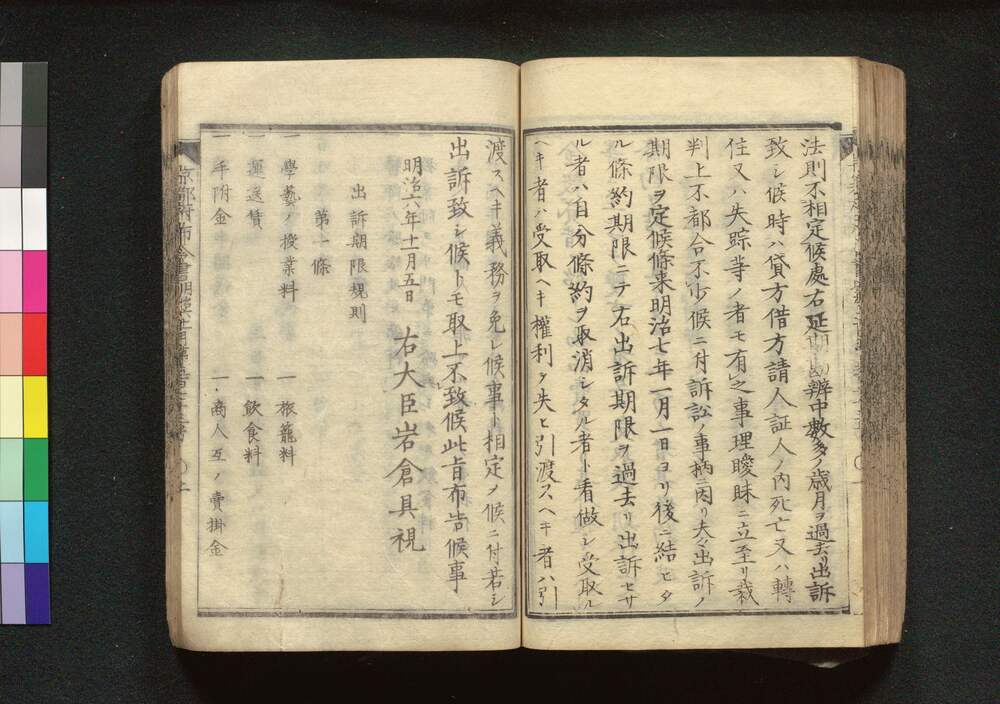 法則不相定候處右延期勘辨中數多ノ歳月ヲ過去リ出訴
致シ候時ハ貸方借方請人証人ノ内死亡又ハ轉
住又ハ失踪等ノ者モ有之事理曖昧ニ立至リ裁
判上不都合不少候ニ付訴訟ノ事柄ニ因リ夫々出訴ノ
期限ヲ定候條來明治七年一月一日ヨリ後ニ結ヒタ
ル條約期限ニテ右出訴期限ヲ過去リ出訴セサ
ル者ハ自分條約ヲ取消シタル者ト看做シ受取ル
ヘキ者ハ受取ヘキ權利ヲ失ヒ引渡スヘキ者ハ引
渡スヘキ義務ヲ免レ候事ト相定メ候ニ付若シ
出訴致シ候トモ取上不致候此旨布告候事
明治六年十一月五日 右大臣岩倉具視
出訴期限規則
第一條
一 學藝ノ授業料 一 旅籠料
一 運送賃 一 飲食料
一 手附金 一 商人互ノ賣掛金
京都府布令書明治六年十一月第